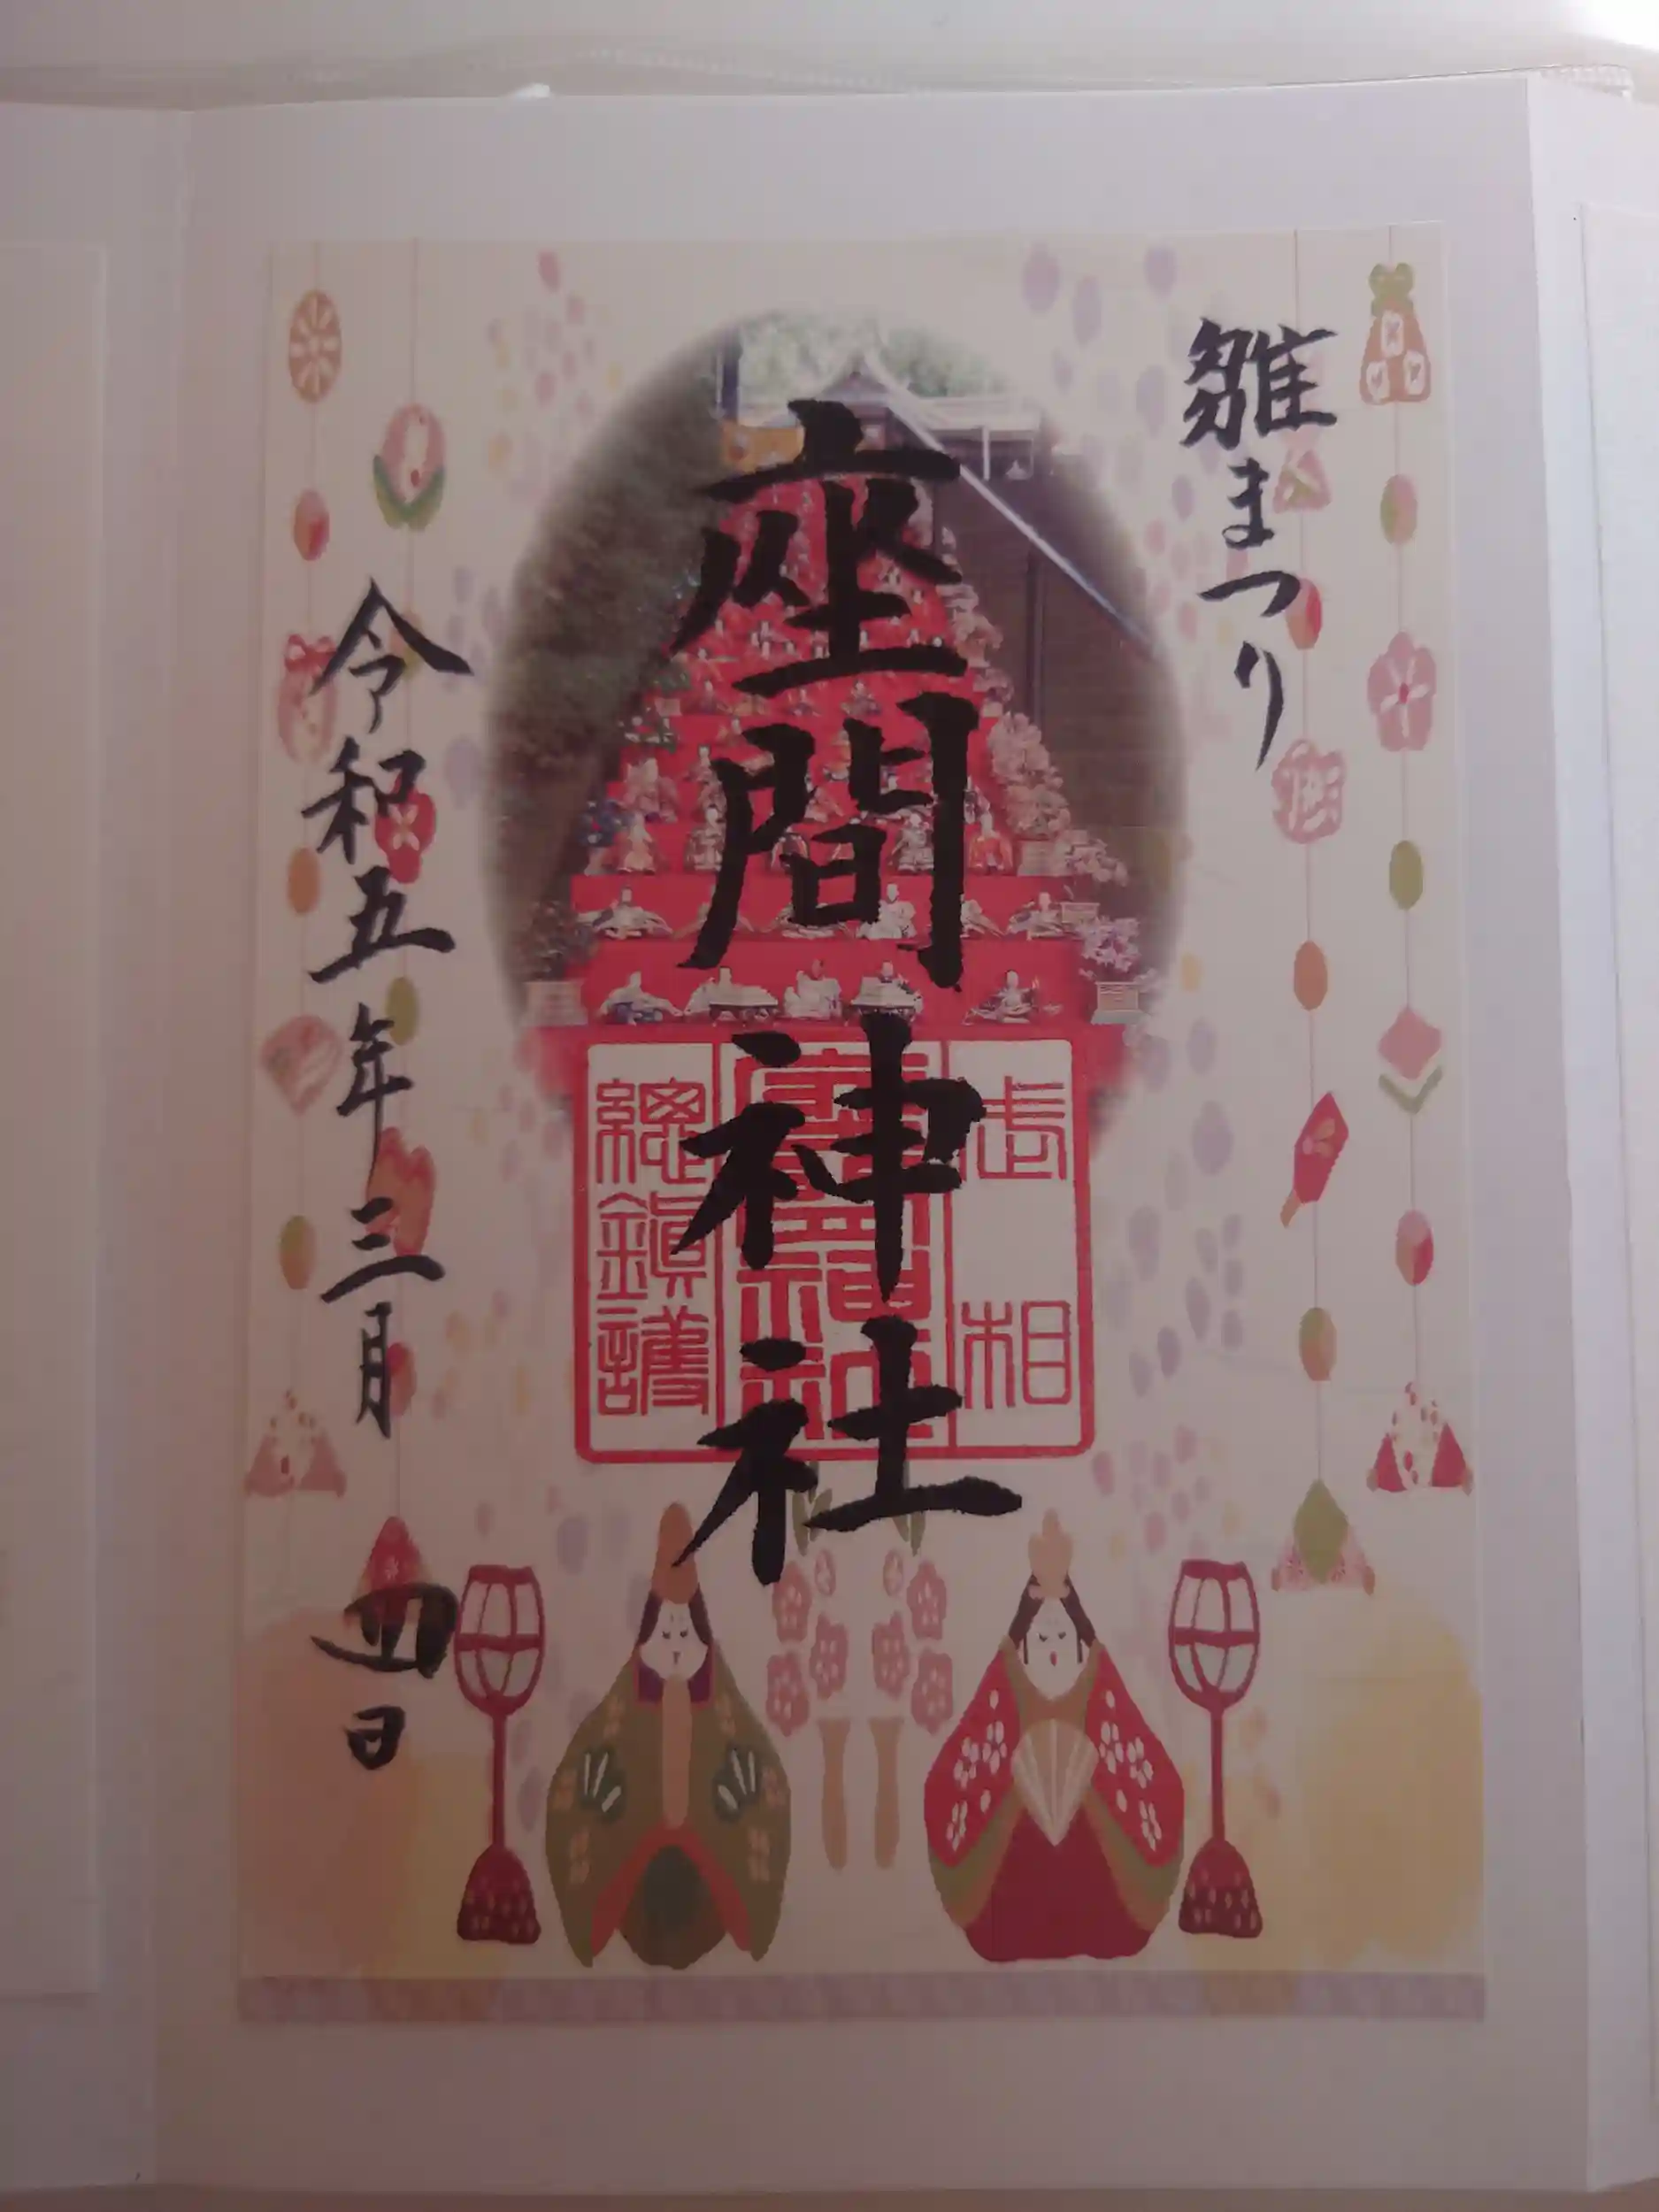 雛まつり
座間神社
武相
總鎮護
令和五年三月四日